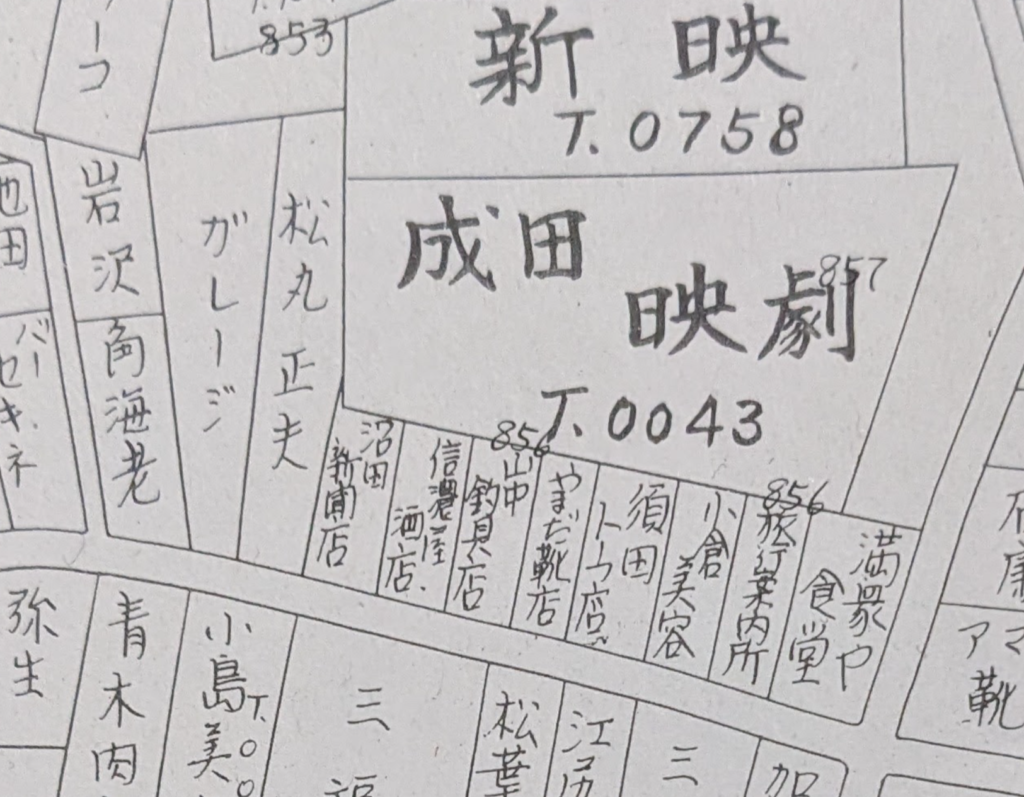 853
新映
T.0758
成田
映劇
857
T.0043
岩沢
角海老
ガレージ
松丸正夫
池田
バー
セキネ
沼田
新聞店
信濃屋
酒店
856
山中
釣具店
やまだ靴店
須田
トウフ店
小倉
美容
856
旅行案内所
満家や
食堂
弥生
青木肉
小島美
T.00
三福
松葉
三
加
アマ
靴